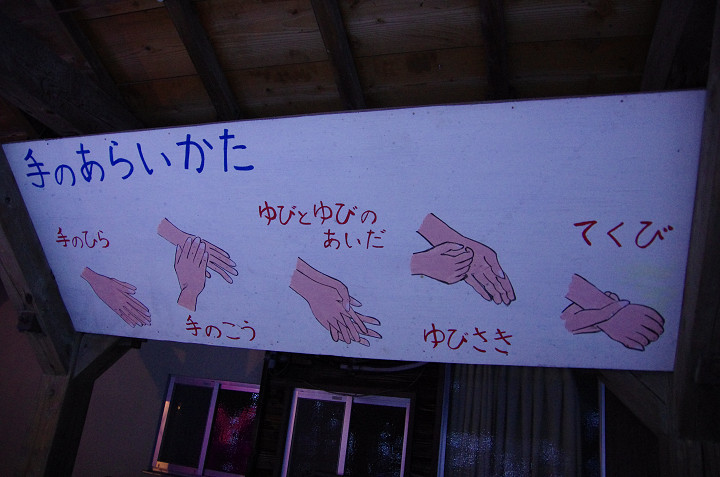 手のあらいかた
手のひら
手のこう
ゆびとゆびの
あいだ
ゆびさき
てくび